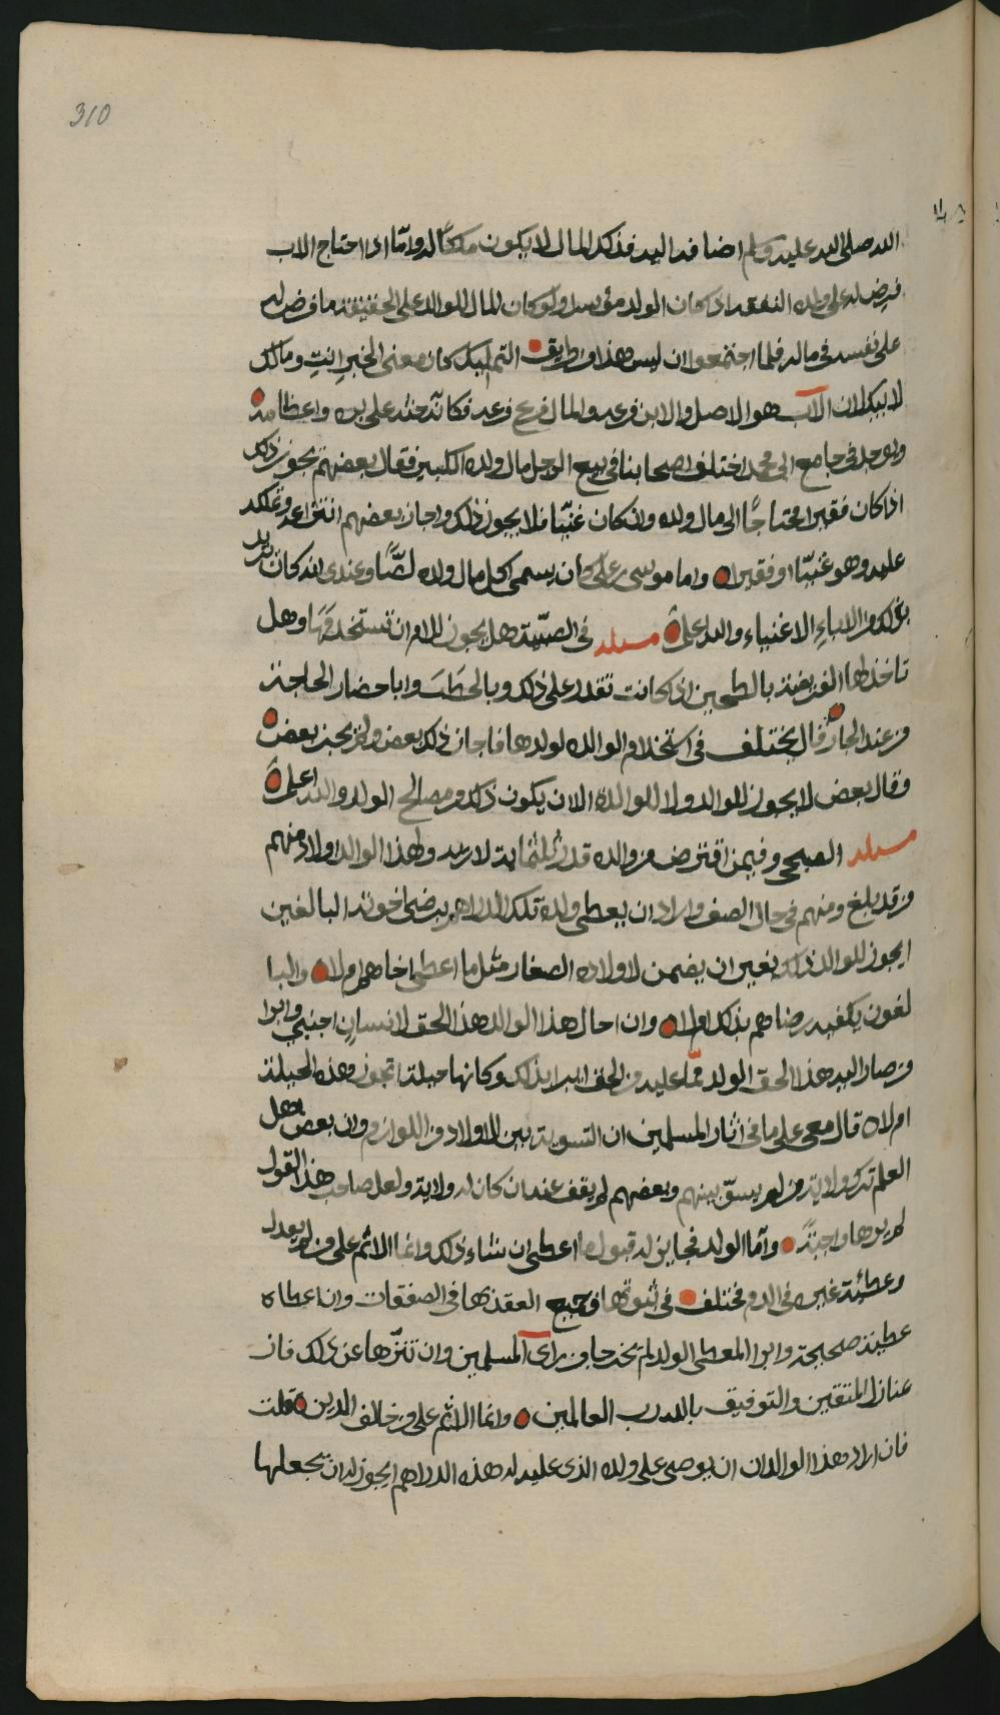 310
الله صلى الله عليه وسلم اضافه اليه فذلك المال لا يكون ملكا له واما اذا احتاج الاب
فرض له على ولده النفقه اذا كان الولد موسرا ولو كان المال للوالد على الحقيقة ما فرض له
على نفسه في ماله فلما اجتمعوا ان ليس هذا من طريق التمليك كان معنى الخبر انت ومالك
لابيك لان الاب هو الاصل والابن فرعه والمال فرع فرعه فكانه حثه على بره واعطامه
ويوجد في جامع ابي محمد اختلف اصحابنا في بيع الرجل مال ولده الكبير فقال بعضهم يجوز ذلك
اذا كان فقيرا محتاجا الى مال ولده وان كان غنيا فلا يجوز ذلك واجاز بعضهم انتزاعه وتملكه
عليه وهو غنيا او فقيرا واما موسى بن علي كان يسمى اكل مال ولده لصا وعندي انه كان يريد
بذلك من الاباء الاغنياء والله اعلم مسئلة في الصبية هل يجوز للام ان تستخدمها وهل
تاخذ لها الفريضة بالطحين اذا كانت تقدر على ذلك وبالحطب وباحضار الحاجة
من عند الجار قال يختلف في استخدام الوالدة لولدها فاجاز ذلك بعض ولم يجز بعض
وقال بعض لا يجوز للوالد ولا للوالدة الا ان يكون ذلك من مصالح الولد والله اعلم
مسئلة الصبحي وفيمن اقترض من والده قدر ثلثماية لارية ولهذا الوالد اولاد منهم
من قد بلغ ومنهم في حال الصغر واراد ان يعطي ولده تلك الدراهم برضى اخوته البالغين
ايجوز للوالد ذلك بغير ان يضمن لاولاده الصغار مثل ما اعطى اخاهم ام لا والبا
لغون يكفيه رضاهم بذلك ام لا وان احال هذا الوالد هذا الحق لانسان اجنبي وابرا
من صار اليه هذا الحق الولد مما عليه من الحق ايبرا بذلك وكانها حيلة اتجوز هذه الحيلة
ام لا قال معي على ما في اثار المسلمين ان التسوية بين الاولاد من اللوازم وان بعض اهل
العلم ترك ولاية من لم يسو بينهم وبعضهم لم يقف عنه ان كان له ولاية ولعل صاحب هذا القول
لم يرها واجبة واما الولد فجايز له قبول ما اعطى ان شاء ذلك وانما الاثم على من لم يعدل
وعطية غيره في الدم مختلف في ثبوتها في جميع العقد بها في الصفقات وان اعطاه
عطية صحيحة وابرا المعطى الولد لم يخرجا من راي المسلمين وان تنزها عن ذلك فان
منازل المتقين والتوفيق بالله رب العالمين وانما الاثم على من خالف الدين قلت
فان اراد هذا الوالدان ان يوصي على ولده الذي عليه له هذه الدراهم ايجوز له ان يجعلها